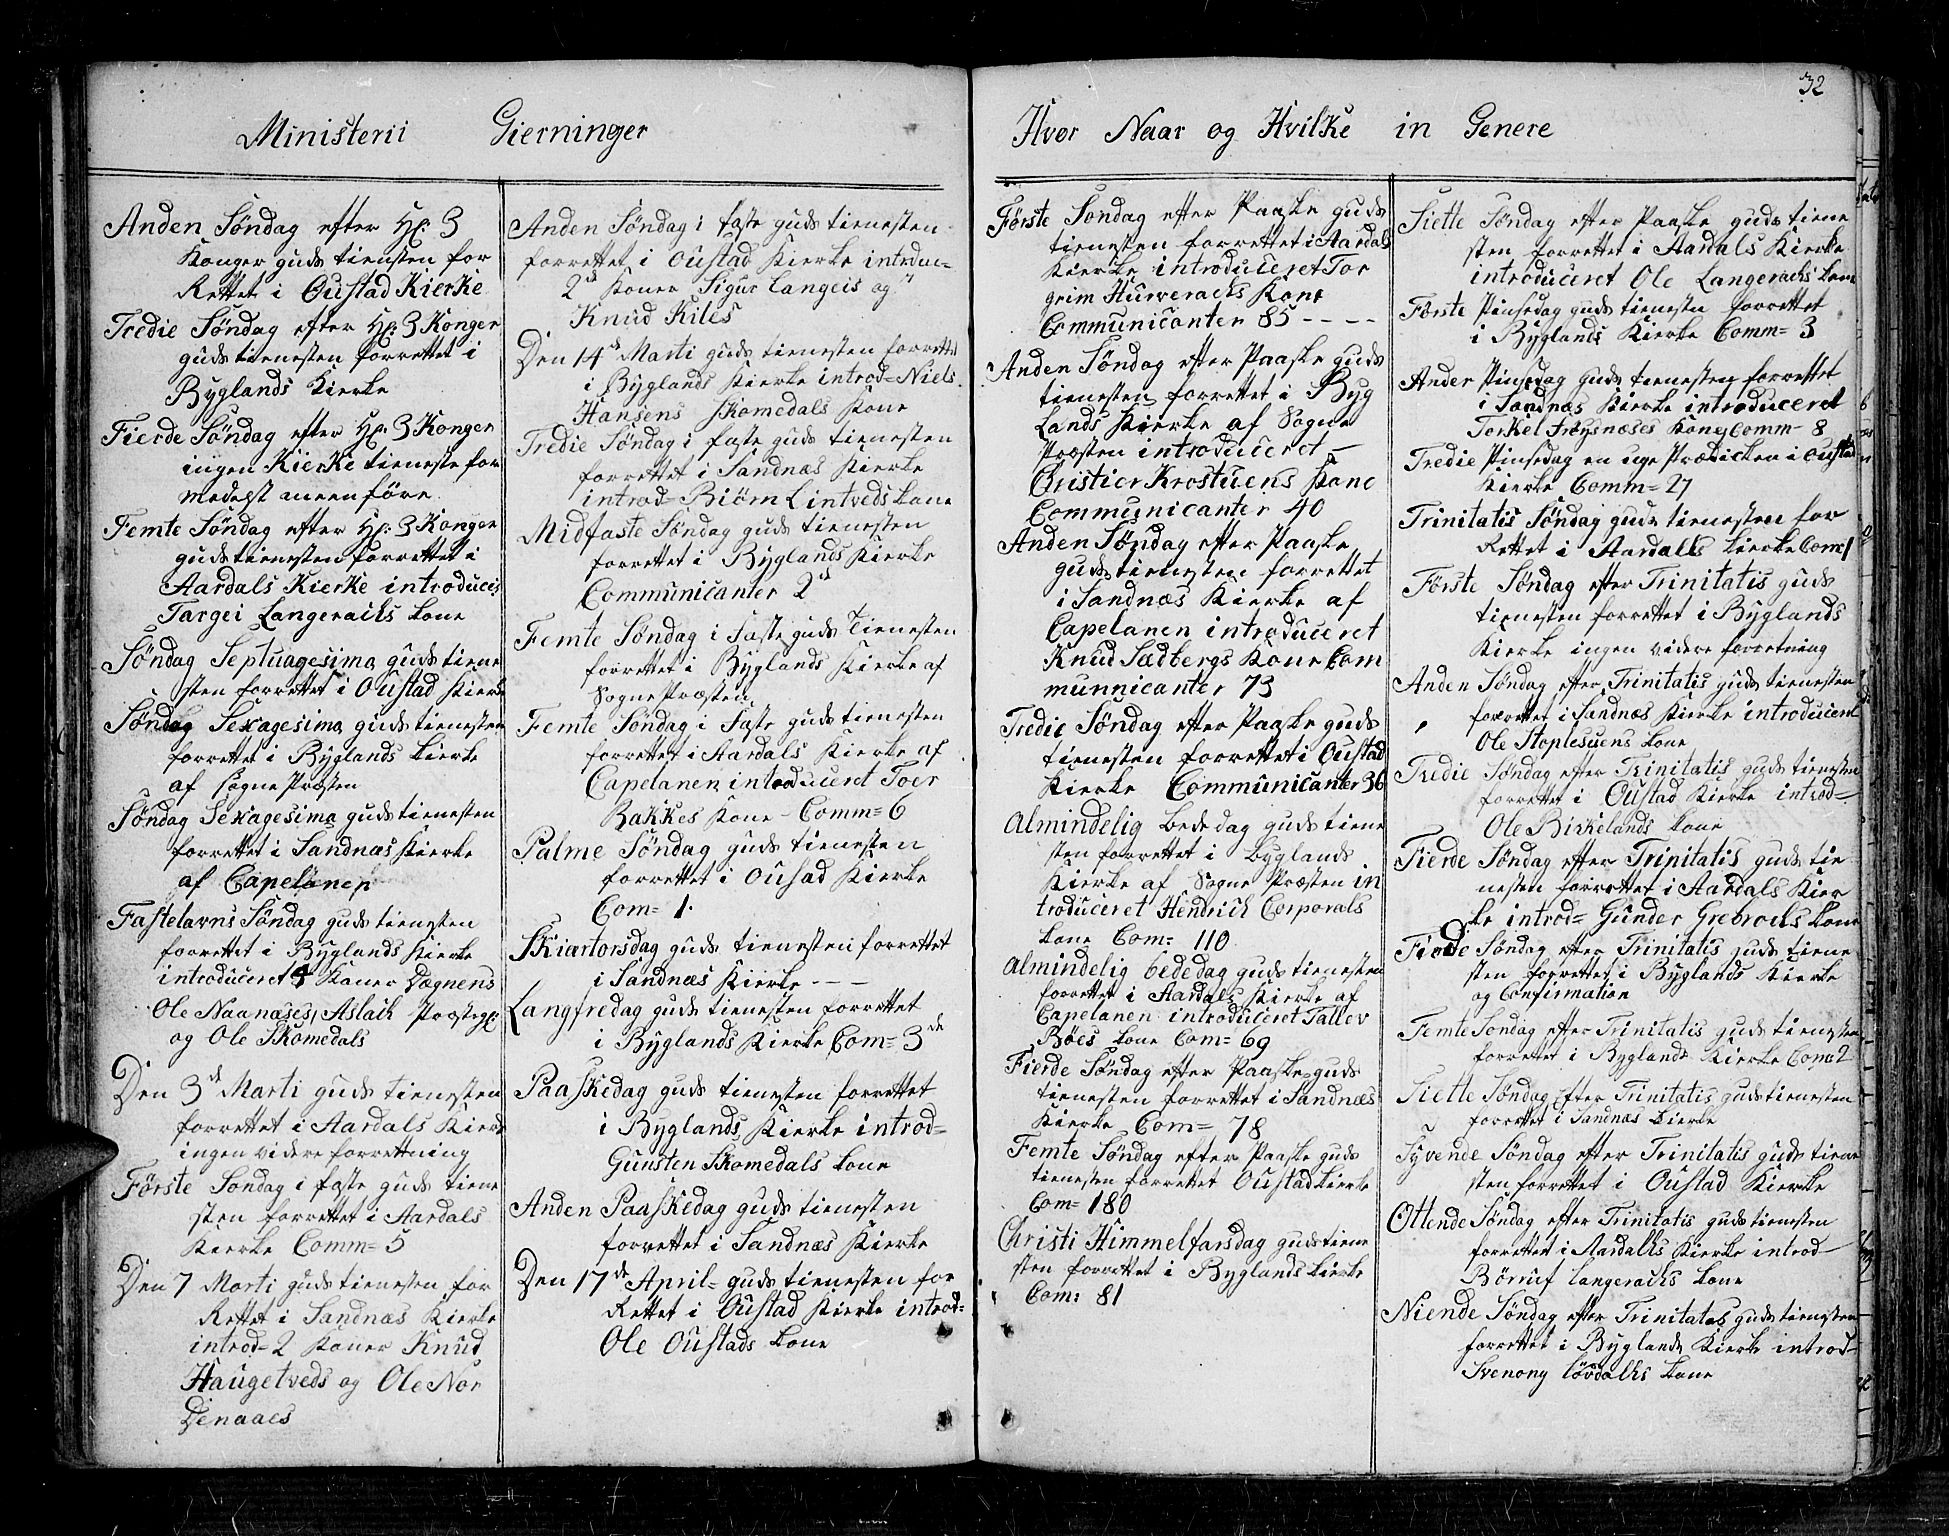 32
Ministerii Gierninger
Anden Søndag efter Hs: 3
Konger guds tiensten for
Rettet i Oustad Kierke
Tredie Søndag efter Hs: 3 Konger
guds tienesten forrettet i
Byglands Kierke
Fierde Søndag efter Hs: 3 Konger
ingen Kierke tieneste for
medelst meenføre
Femte Søndag efter Hs: 3 Konger
guds tienesten forrettet i
Aardals Kierke introduceis
Targei Langeracks kone
Søndag Septuagesima guds tiene
sten forrettet i Oustad Kierke
Søndag Sexagesima guds tienesten
forrettet i Byglands kierke
af sogne Præsten
Søndag Sexagesima guds tienesten
forrettet i Sandnæs Kierke
af Capelanen
Fastelavns Søndag guds tienesten
forrettet i Byglands Kierke
introduceret 4 Kaner Dægnens
Ole Naanæses, Aslach Præsteg:
og Ole Skomedals
Den 3d Marti guds tienesten
forrettet i Aardals Kierke
ingen videre forrettning
Første Søndag i faste guds tiene
sten forrettet i Aardals
Kierke Comm= 5
Den 7 Marti guds tienesten for
Rettet i Sandnæs Kierke
introd= 2 Koner Knud
Haugetveds og Ole Nor
Denaaes
Anden Søndag i faste guds tienesten
forrettet i Oustad Kierke introdu=
2de Koner Sigur Langeis og
Knud Kiles
Den 14d Marti guds tienesten forrettet
i Byglands Kierke introd= Niels
Hansens Skomedals Kone
Tredie Søndag i faste guds tienesten
forrettet i Sandnæs Kierke
introd= Biørn Lintveds kone
Midfaste Søndag guds tienesten
forrettet i Byglands Kierke
Communicanter 2d
Femte Søndag i Faste guds Tienesten
forrettet i Byglands Kierke af
Sogne Præsten
Femte Søndag i Faste guds tienesten
forrettet i Aardals Kierke af
Capelanen introduceret Toer
Bakkes Kone - Comm= 6
Palme Søndag guds tienesten
forrettet i Ousad Kierke
Com= 1.
Skiærtorsdag guds tienesten forrettet
i Sandnæs Kierke - - -
Langfredag guds tienesten forrettet
i Byglands Kierke Com= 3de
Paaskedag guds tienesten forrettet
i Byglands Kierke introd=
Gunsten Skomedals kone
Anden Paaskedag guds tienesten
forrettet i Sandnæs Kierke
Den 17de April= guds tienesten for
Rettet i Oustad Kierke introd=
Ole Oustads kone
Hvor Naar og Hvilke in Genere
Første Søndag efter Paaske guds
tienesten forrettet i Aardals
Kierke introduceret Tor
grim Hurveracks Kone
Communicanter 85 - - - -
Anden Søndag efter Paaske guds
tienesten forrettet i Byg
Lands Kierke af Sogne
Præsten introduceret -
Christier Krostuens Kone
Communicanter 40
Anden Søndag efter Paaske
guds tienesten forrettet
i Sandnæs Kierke af
Capelanen introduceret
Knud Sædbergs Kone Com
municanter 73
Tredie Søndag efter Paaske guds
tienesten forrettet i Oustad
Kierke Communicanter 36
Almindelig bededag guds tiene
sten forrettet i byglands
Kierke af Sogne Præsten in
troduceret Hendrich Corporals
kone Com= 110
Almindelig bededag guds tienesten
forrettet i Aardals Kierke af
Capelanen introduceret Tallev
Bøes kone Com= 69
Fierde Søndag efter Paaske guds
tienesten forrettet i Sandnæs
Kierke Com= 78
Femte Søndag efter Paaske guds
tienesten forrettet Oustad kierke
Com= 180
Christi Himmelfarsdag guds tiene
sten forrettet i Byglands kierke
Com: 81
Siette Søndag efter Paaske guds tiene
sten forrettet i Aardals Kierke
introduceret Ole Langeracks kone
Første Pinsedag guds tienesten forrettet
i Byglands Kierke Comm= 3
Anden Pinsedag guds tienesten forrettet
i Sandnæs Kierke introduceret
Torkel Frøysnæses Kone Comm- 8
Tredie Pinsedag en uge Prædicken i Oustad
Kierke Comm= 27
Trinitatis Søndag guds tienesten for
Rettet i Aardals kierke Com: 1
Første Søndag efter Trinitatis guds
tienesten forrettet i Byglands
Kierke ingen videre forretning
Anden Søndag efter Trinitatis guds tienesten
forrettet i Sandnæs Kierke introduceret
Ole Stoplesuens kone
Tredie Søndag efter Trinitatis guds tienesten
forrettet i Oustad Kierke introd=
Ole Birkelands kone
Fierde Søndag efter Trinitatis guds tie
nesten forrettet i Aardals Kier
ke introd= Gunder Grebrocks kone
Fierde Søndag efter Trinitatis guds tiene
sten forrettet i Byglands Kierke
og Confirmation
Femte Søndag efter Trinitatis guds tienesten
forrettet i Byglands Kierke Com: 2
Siette Søndag Efter Trinitatis guds tienesten
forrettet i Sandnæs kierke
Syvende Søndag efter Trinitatis guds tiene
sten forrettet i Oustad Kierke
Ottende Søndag efter Trinitatis guds tienesten
forrettet i Aardalks Kierke introd-
Børruf Langeracks kone
Niende Søndag efter Trinitatas guds tienesten
forrettet i Byglands Kierke introd-
Svenong Løvdalks kone